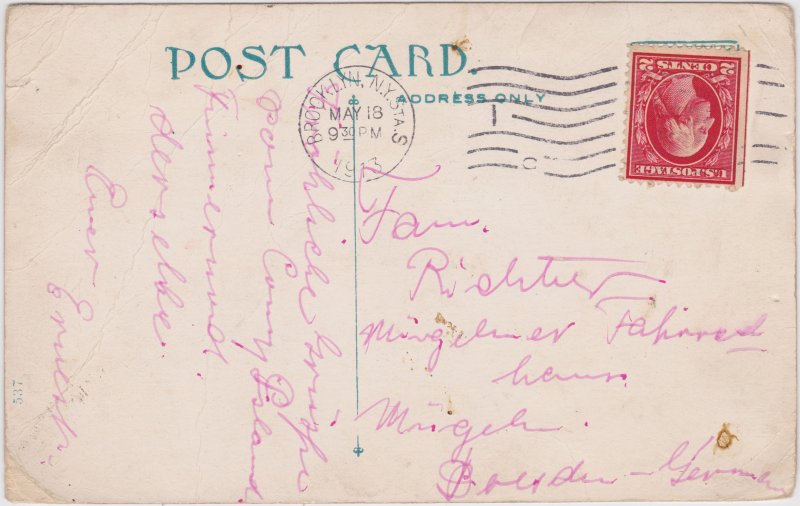 POST CARD.
ADDRESS ONLY
BROOKLYN, N.Y. STA. S
MAY 18
9 30 PM
1913
2 CENTS 2
U.S. POSTAGE
Fröhliche Grüße
vom Coney Island
Immernoch
derselbe.
Euer Ernest.
Fam.
Richter
Mügelner Fahrrad
haus
Mügeln.
Dresden - Germany
537